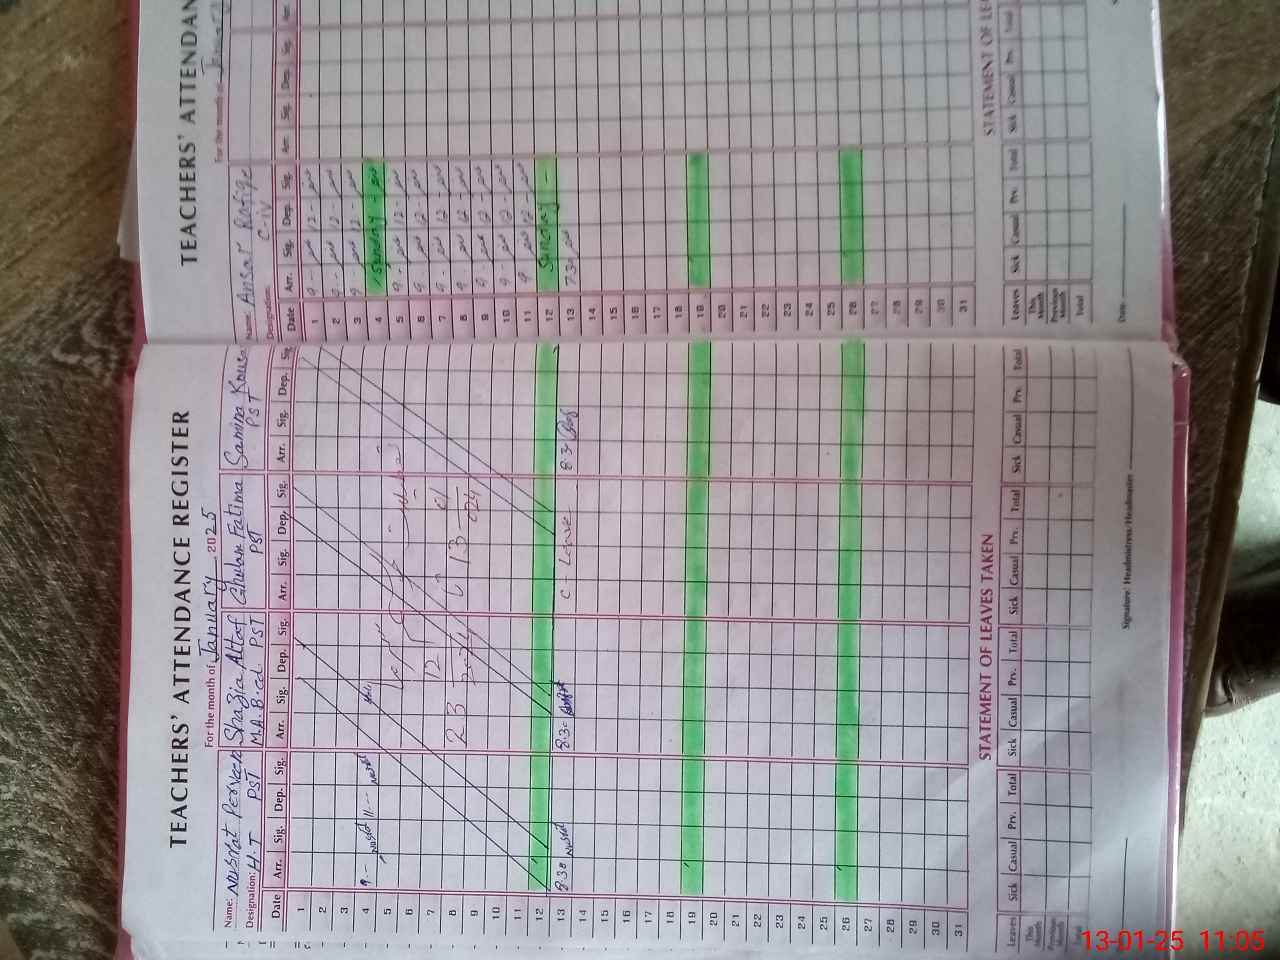 TEACHERS' ATTENDANCE REGISTER
For the month of January 2025
Name: Nusrat Perveen Shazia Altaf Ghulam Fatima Samina Kousar
Designation: H.T PST M.A. B.ed. PST PST PST
Date Arr. Sig. Dep. Sig. Arr. Sig. Dep. Sig. Arr. Sig. Dep. Sig. Arr. Sig. Dep. Sig.
1
2
3
4 9.- Nusrat 11.- Nusrat
5
6
7
8
9
10
11
12
13 8.30 Nusrat 8.30 C - Leave 8.30
14
15
16
17
18
19
20
21
22
23
24
25
26
27
28
29
30
31
23 12 2024 13 01 024
STATEMENT OF LEAVES TAKEN
Leaves Sick Casual Prv. Total Sick Casual Prv. Total Sick Casual Prv. Total Sick Casual Prv. Total
This Month
Previous Month
Total
Signature: Headmistress/Headmaster
TEACHERS' ATTENDAN
For the month of
Name: Ansar Rafique
Designation: C-IV
Date Arr. Sig. Dep. Sig. Arr. Sig. Dep. Sig. Arr.
1 9 - 12 -
2 9 - 12 -
3 9 12 -
4 Sunday -
5 9 - 12 -
6 9 - 12 -
7 9 - 12 -
8 9 - 12 -
9 9 - 12 -
10 9 - 12 -
11 9 12 -
12 Sunday -
13 7.30
14
15
16
17
18
19
20
21
22
23
24
25
26
27
28
29
30
31
STATEMENT OF LE
Leaves Sick Casual Prv. Total Sick Casual Prv. Total Sick
This Month
Previous Month
Total
Date
13-01-25 11:05